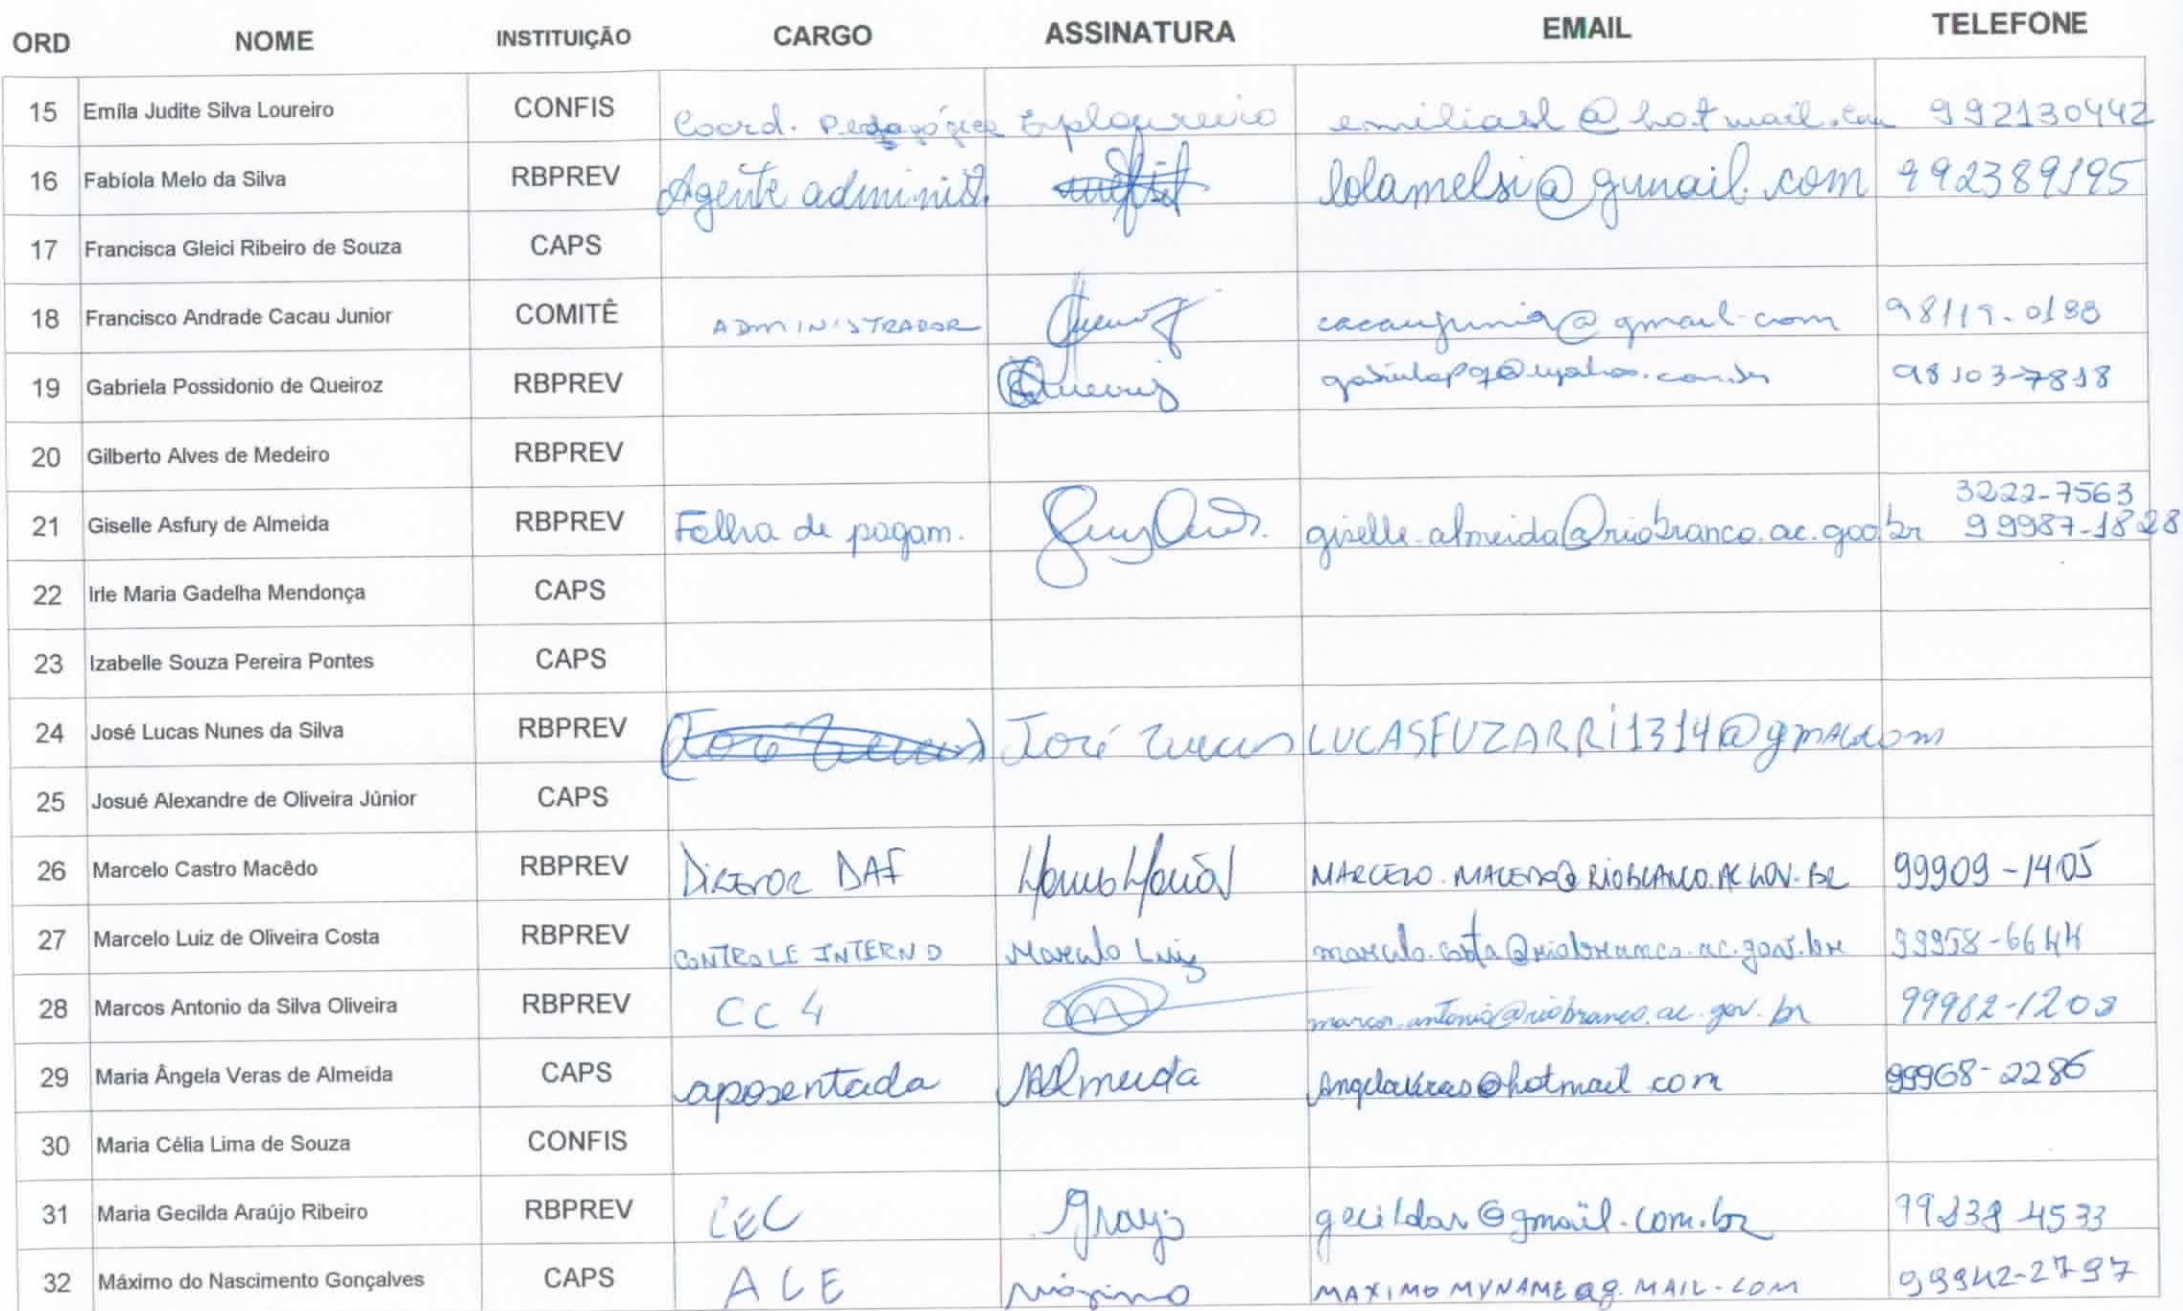 ORD NOME INSTITUIÇÃO CARGO ASSINATURA EMAIL TELEFONE
15 Emíla Judite Silva Loureiro CONFIS Coord. Pedagógica emiliasl@hotmail.com 992130442
16 Fabíola Melo da Silva RBPREV Agente administ. lolamelsi@gmail.com 992389195
17 Francisca Gleici Ribeiro de Souza CAPS
18 Francisco Andrade Cacau Junior COMITÊ ADMINISTRADOR cacaujunior@gmail.com 98119-0188
19 Gabriela Possidonio de Queiroz RBPREV Queiroz 98103-7818
20 Gilberto Alves de Medeiro RBPREV
3222-7563
21 Giselle Asfury de Almeida RBPREV Folha de pagam. giselle.almeida@riobranco.ac.gov.br 99987-1828
22 Irle Maria Gadelha Mendonça CAPS
23 Izabelle Souza Pereira Pontes CAPS
24 José Lucas Nunes da Silva RBPREV José Lucas LUCASFUZARRI1314@gmail.com
25 Josué Alexandre de Oliveira Júnior CAPS
26 Marcelo Castro Macêdo RBPREV DIRETOR DAF MARCELO.MACEDO@RIOBRANCO.AC.GOV.BR 99909-1405
27 Marcelo Luiz de Oliveira Costa RBPREV CONTROLE INTERNO Marcelo Luiz marcelo.costa@riobranco.ac.gov.br 99958-6644
28 Marcos Antonio da Silva Oliveira RBPREV CC 4 marcos.antonio@riobranco.ac.gov.br 99982-1208
29 Maria Ângela Veras de Almeida CAPS aposentada MAlmeida Angelaveras@hotmail.com 99968-2286
30 Maria Célia Lima de Souza CONFIS
31 Maria Gecilda Araújo Ribeiro RBPREV CEC gecildar@gmail.com.br
32 Máximo do Nascimento Gonçalves CAPS ACE Máximo MAXIMOMYNAME@G.MAIL.COM 99942-2797